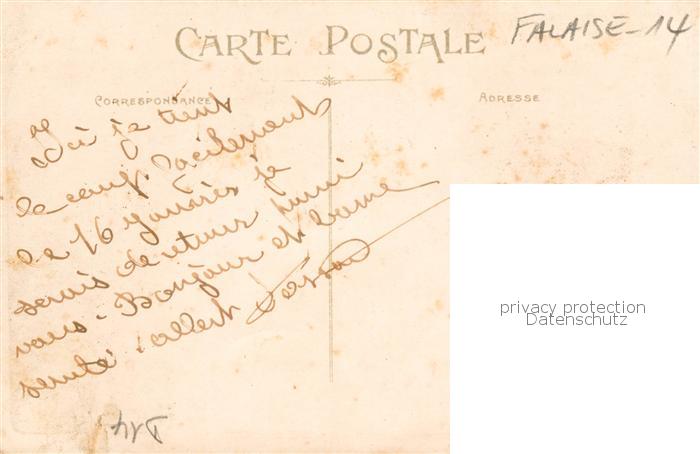 FALAISE-14
CARTE POSTALE
CORRESPONDANCE
ADRESSE
je tient
le coup facilement
le 16 je
serais de retour parmi
vous. Bonjour et bonne
santé. albert
privacy protection
Datenschutz